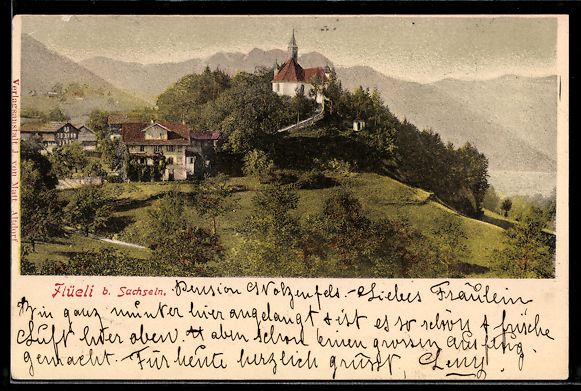 Verlagsanstalt von Matt, Altdorf
Flüeli b. Sachseln. Pension Nolzenfels. - Liebes Fräulein
Bin ganz munter hier angelangt & ist es so schön & frische
Luft hier oben. aben schon einen grossen Ausflug
gemacht. - Für heute herzlich grüsst,